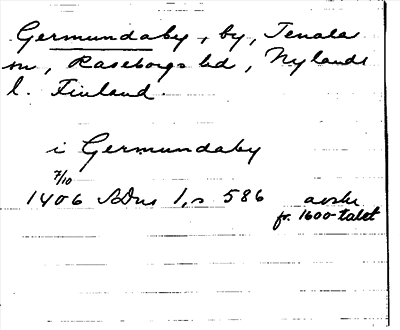 Germundaby, by, Tenala
sn, Raseborgs hd, Nylands
l. Finland.
i Germundaby
7/10
1406 SDns 1, s 586 avskr
fr. 1600-talet